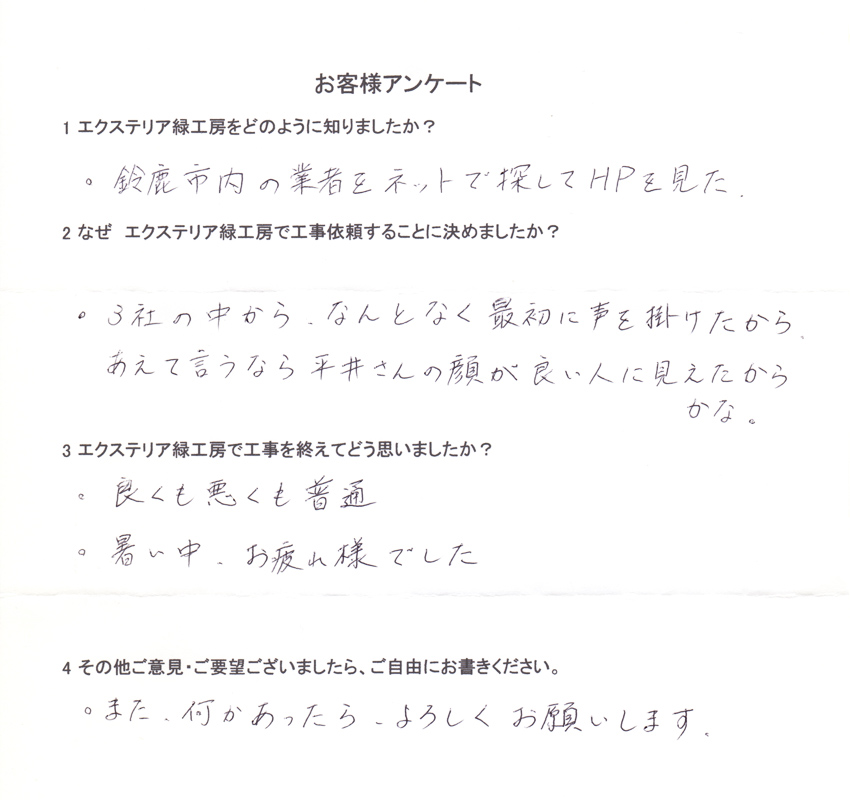 お客様アンケート
1 エクステリア緑工房をどのように知りましたか？
。鈴鹿市内の業者をネットで探してHPを見た.
2 なぜ エクステリア緑工房で工事依頼することに決めましたか？
。3社の中から、なんとなく最初に声を掛けたから、
あえて言うなら平井さんの顔が良い人に見えたから
かな。
3 エクステリア緑工房で工事を終えてどう思いましたか？
。良くも悪くも普通
。暑い中、お疲れ様でした
4 その他ご意見・ご要望ございましたら、ご自由にお書きください。
。また、何かあったら、よろしくお願いします。